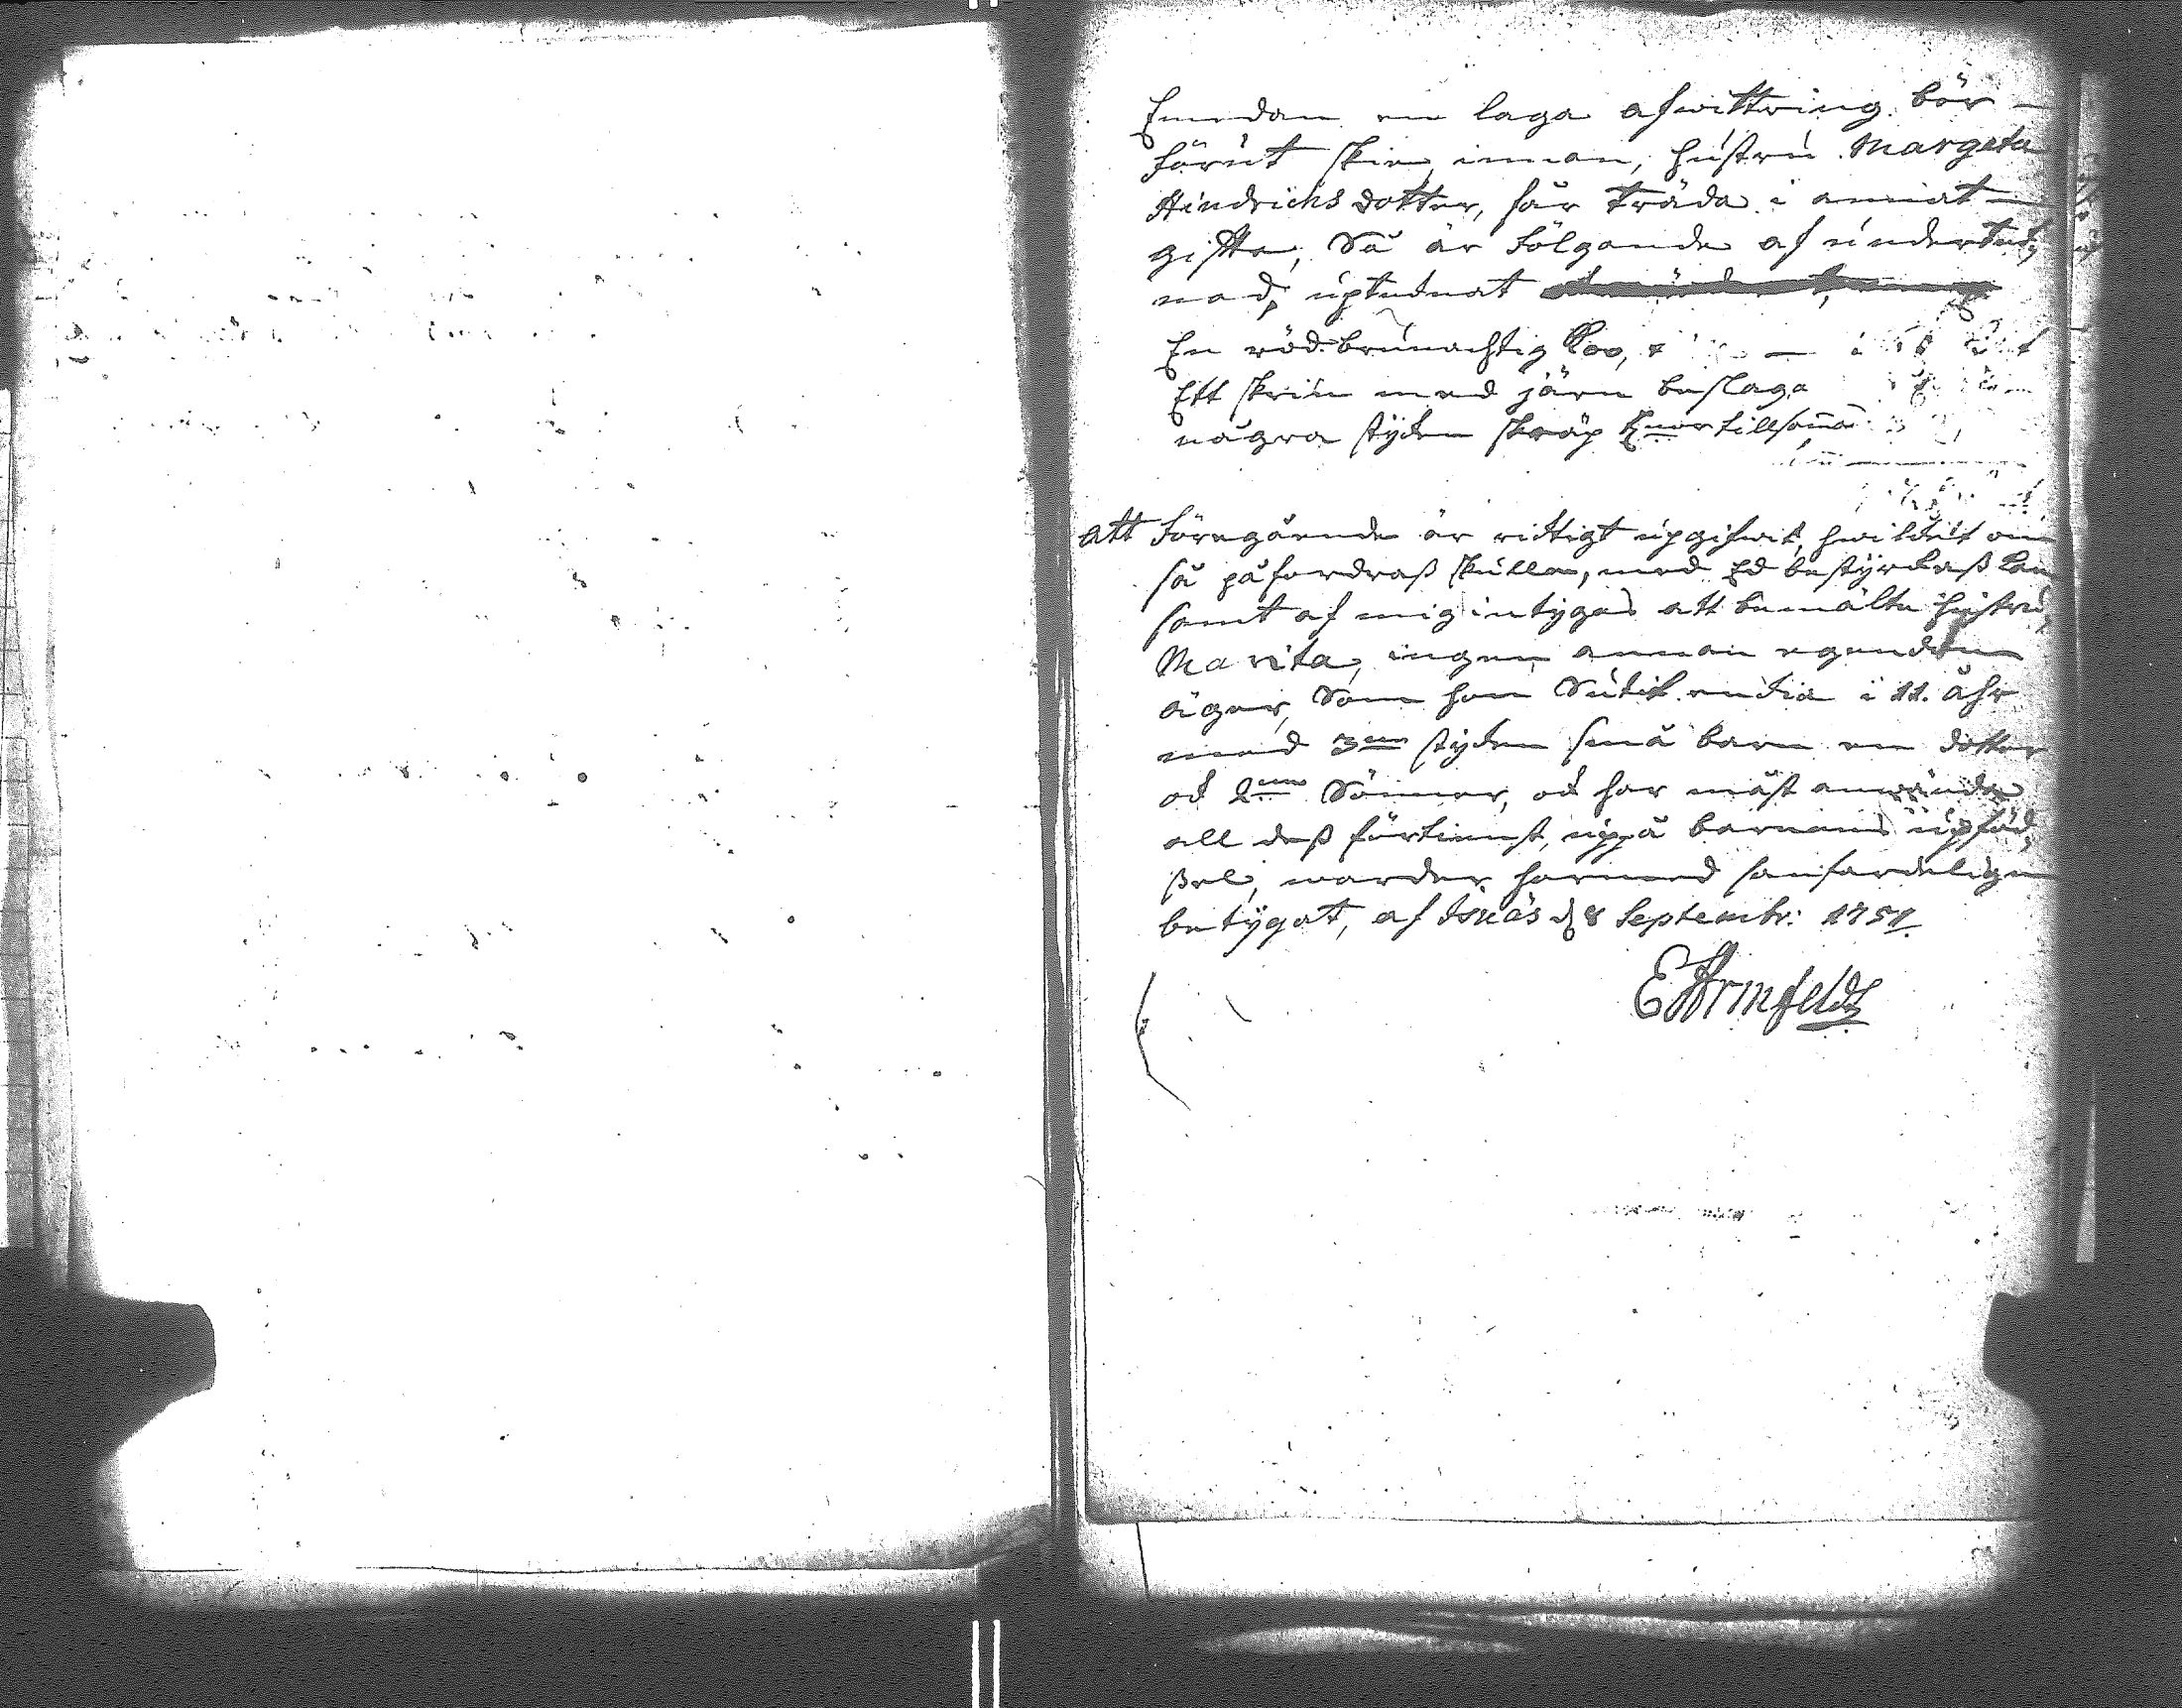 Emedan en laga afwittring bör
förut skie, innan, hustru Margeta
Hindrichs dotter, får träda i annat
gifte, Så är fölgande af undertek,
nad, uptecknat
En röd brunachtig koo,
Ett skrin med järn beslaga
några stycken skräp tillsaman
att föregående är ricktigt upgifwit, hwilcket om
så påfordraß skulle, med Ed bestyrckaß kan
samt af mig intygas att bemälte hustru,
Marita, ingen annan egendom
äger, Som hon Suttit enckia i 11. åhr
med 3ne stycken små barn en dotter
och 2ne Sönner, och har mäst anwända
all deß förtienst, uppå barnens upföd,
ßel, warder harmed sanfärdeligen
betygat, af Isnäs d 8 Septembr: 1751.
E Armfeldt